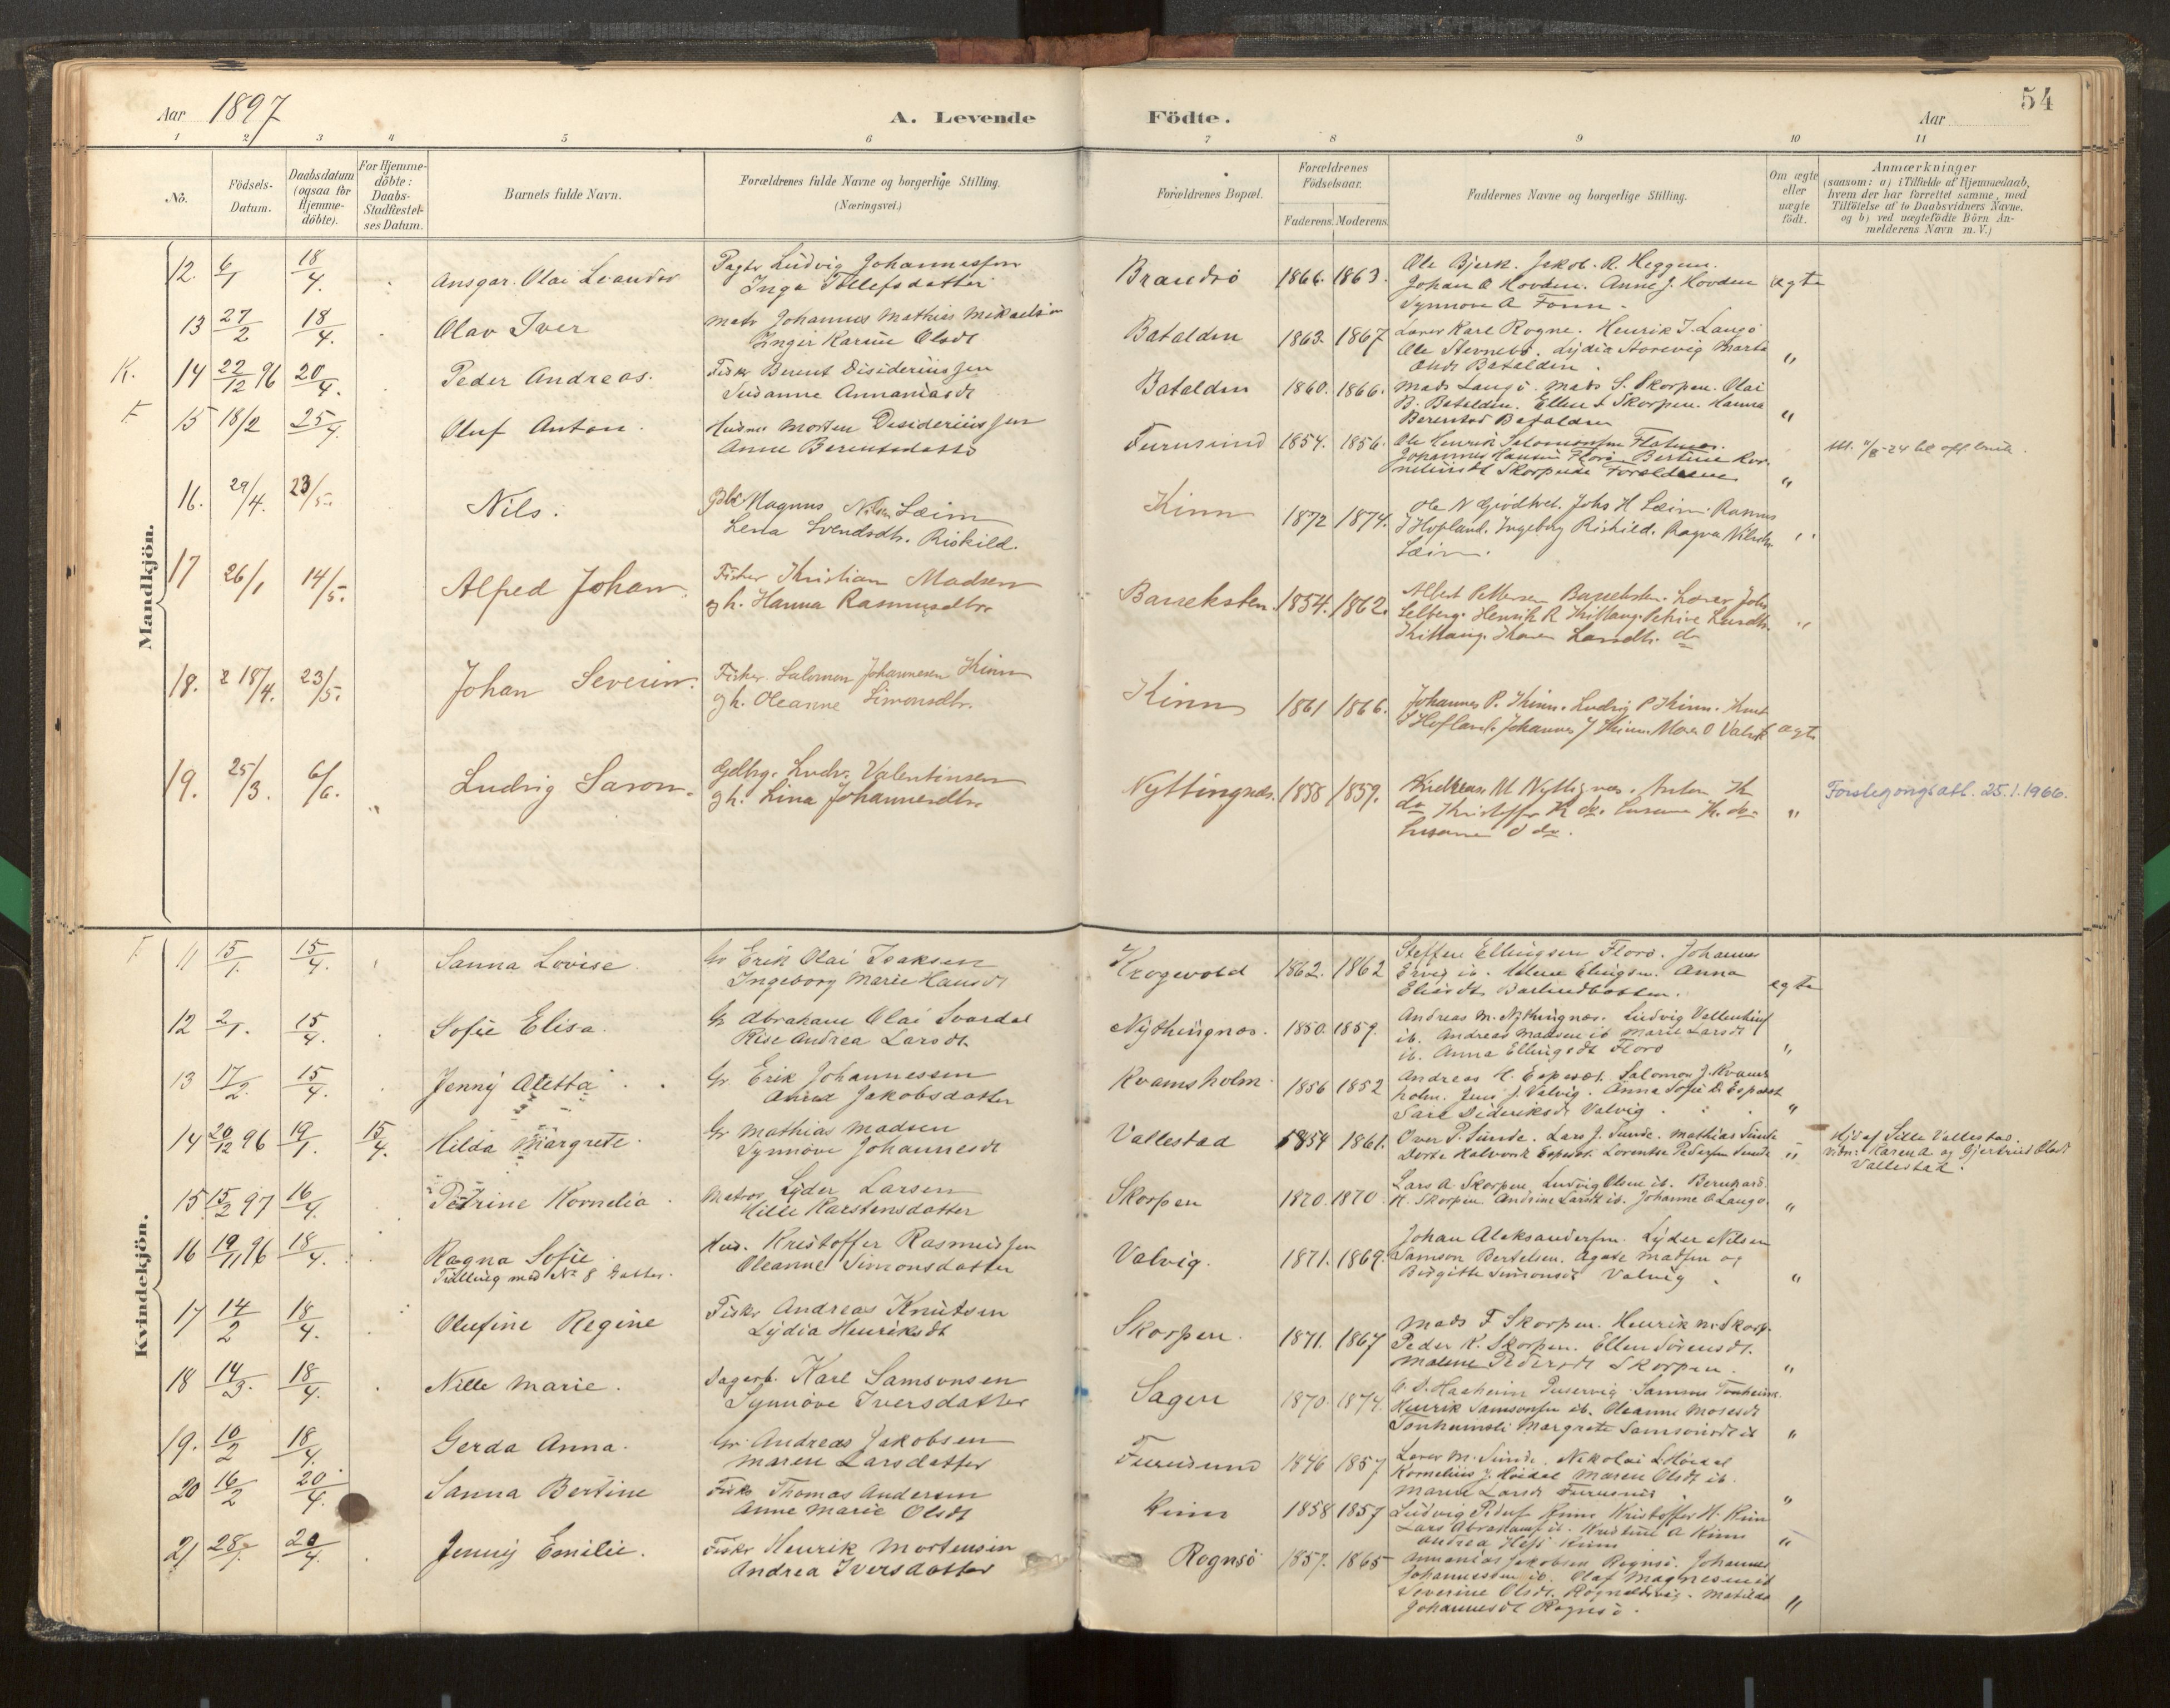 54
Aar 1897
A. Levende
Födte.
Aar
1 2 3 4 5 6 7 8 9 10 11
No.
Födsels-
Datum.
Daabsdatum
(ogsaa for
Hjemme-
döbte).
For Hjemme-
döbte:
Daabs-
Stadfæstel-
ses Datum.
Barnets fulde Navn.
Forældrenes fulde Navne og borgerlige Stilling.
(Næringsvei.)
Forældrenes Bopæl.
Forældrenes
Födselsaar.
Faderens. Moderens.
Faddernes Navne og borgerlige Stilling.
Om ægte
eller
uægte
födt.
Anmærkninger
(saasom: a) i Tilfælde af Hjemmedaab,
hvem der har forrettet samme, med
Tilföielse af to Daabsvidners Navne,
og b) ved uægtefödte Börn An-
melderens Navn m. V.)
Mandkjön.
12. 6/1 18/4. Ansgar Olai Leander
Ludvig Johannessen
Inga Tollefsdatter
Brandsö 1866. 1863.
Ole Bjerk. Jakob R. Heggem.
Johan O Hovden. Anne J. Hovden
Synnove A Fonn.
ægte
13 27/2 18/4. Olav Iver
Matr Johannes Mathias Mikaelsen
Inger Karine Olsdt
Batalden 1863. 1867
Lærer Karl Rogne. Henrik J. Langö
Ole Stavnebö. Lydia Storevig Marta
Olsdt Batalden.
"
K. 14 22/12 96 20/4. Peder Andreas.
Fisker Berent Disideriussen
Susanne Annaniasdt
Batalden 1860. 1866.
Mads Langö. Mads S. Skorpen. Olai
B. Batalden. Ellen S Skorpen. Hanna
Berentsd Batalden
"
F. 15 18/2 25/4. Oluf Anton.
Husm Morten Desideriussen
Anne Berentsdatter
Furusund 1854. 1856.
Ole Henrik Salomonsen Flatenes.
Johannes Hansen Florö Bertine Kor-
neliusdt Skorpeide Forældrene
"
Att. 11/8-24 til off. bruk.
16. 29/4. 23/5. Nils.
Gbr Magnus Nilsen Leim
Lena Svendsdtr. Riskild.
Kinn 1872 1874.
Ole N Gjödtvet. Johs H Leim Rasmus
J Hopland. Ingeborg Riskild. Ragna Nilsdtr
Leim.
"
17 26/1 14/5. Alfred Johan.
Fisker Kristian Madsen
g h. Hanna Rasmusdtr.
Bareksten. 1854. 1862.
Albert Pettersen Barreksten. Lærer Johs
Selberg. Henrik R Kittang. Petrine Larsdtr.
Kittang. Karen Larsdtr. do
"
18. 18/4. 23/5. Johan Severin.
Fisker. Salomon Johannesen Kinn
g h. Oleanne Simonsdtr.
Kinn 1861 1866.
Johannes P. Kinn. Ludvig P Kinn. Knut
S Hofland. Johannes J Kinn. Maren O Valvik
ægte
19. 25/3. 6/6. " Ludvig Saron.
Gdbrg. Ludv. Valentinsen
g h. Lina Johannesdtr.
Nyttingnæs. 1858 1859.
Andreas M Nyttignæs. Anton K
do Kristoffer K do. Susanne K. do.
Susanne O do.
"
Förstegongsatt. 25.1.1966.
Kvindekjön.
F. 11 15/1. 15/4. Sanna Lovise.
Gr Erik Olai Isaksen
Ingeborg Marie Hansdt
Krogevold 1862. 1862
Steffen Ellingsen Florö. Johannes
Anna
Eliasdt Barlindbotten.
ægte
12 2/1. 15/4. Sofie Elisa.
Gr Abraham Olai Svardal
Rise Andrea Larsdt.
Nythingnæs. 1850. 1859.
Andreas M. Nythingnæs. Ludvig Vallentins
ib. Andreas Madsen ib Marie Larsdt
ib. Anna Ellingsdt Florö
"
13 17/2. 15/4. Jenny Aletta.
Gr. Erik Johannessen
Anna Jakobsdatter
Kvamsholm 1856 1852
Andreas H. Espeset. Salomon J. Kvams-
holm. Jens J. Valvig. Anna Sofie D. Espeset
Sara Dideriksdt Valvig.
"
14 20/12 96 19/1. 15/4. Hilda Margrete.
Gr Mathias Madsen
Synnöve Johannesdt
Vallestad 1854 1861.
Over P. Sunde. Lars J. Sunde. Mathias Sunde
Dorte Halvorsdt Espeset. Lorentse Pedersen Sunde
"
Hjd af Sille Vallestad.
Vidn: Karen A og Gjertrud Olsdt
Vallestad.
15 15/2 97 16/4. Petrine Kornelia.
Matros Lyder Larsen
Mille Karstensdatter
Skorpen 1870. 1870
Lars A Skorpen. Ludvig Olsen ib. Bernhard
K. Skorpen. Andrine Larsdt ib. Johanne O Langö.
"
16 19/11 96 18/4. Ragna Sofie
Tvilling med No 8 Gutter.
Hus. Kristoffer Rasmussen
Oleanne Simonsdatter
Valvig. 1871. 1869.
Johan Aleksandersen. Lyder Nilsen
Samson Bertelsen. Agate Madsen og
Birgitte Simonsdt Valvig.
"
17 14/2 18/4. Olufine Regine
Fisker Andreas Knutsen
Lydia Henriksdt
Skorpen. 1871. 1867
Mads F Skorpen. Henrik M. Skorp.
Peder K. Skorpen. Ellen Sörensdt.
Malene Pedersdt Skorpen.
"
18 14/3. 18/4. Nille Marie.
Dagarb. Karl Samsonsen
Synnöve Iversdatter
Sagen 1870. 1874.
Samson Tonheim.
Henrik Samsonsen ib. Oleanne Mosesdt
Tonheimsli Margrete Samsonsdt ib
"
19. 10/2 18/4. Gerda Anna.
Gr. Andreas Jakobsen
Maren Larsdatter
Furusund 1846 1857
Lærer M. Sunde. Nikolai L. Höidal
Kornelius J. Höidal Maren Olsdt ib.
Maren Larsdt Furusund.
"
20 16/2 20/4. Sanna Bertine
Fisker Thomas Andersen
Anne Marie Olsdt
Kinn 1858 1857
Ludvig Peders Kinn Kristoffer H. Kinn
Lars Abrahams ib. Kristine A Kinn
Andrea Kinn
"
21 28/1. 20/4. Jenny Emilie.
Fisker Henrik Mortensen
Andrea Iversdatter
Rognsö 1857. 1865
Annanias Jakobsen Rognsö. Johannes
Johannessen ib. Olaf Magnesen ib
Severine Olsdt. Rognaldsvig. Matilda
Johannesdt Rognsö.
"